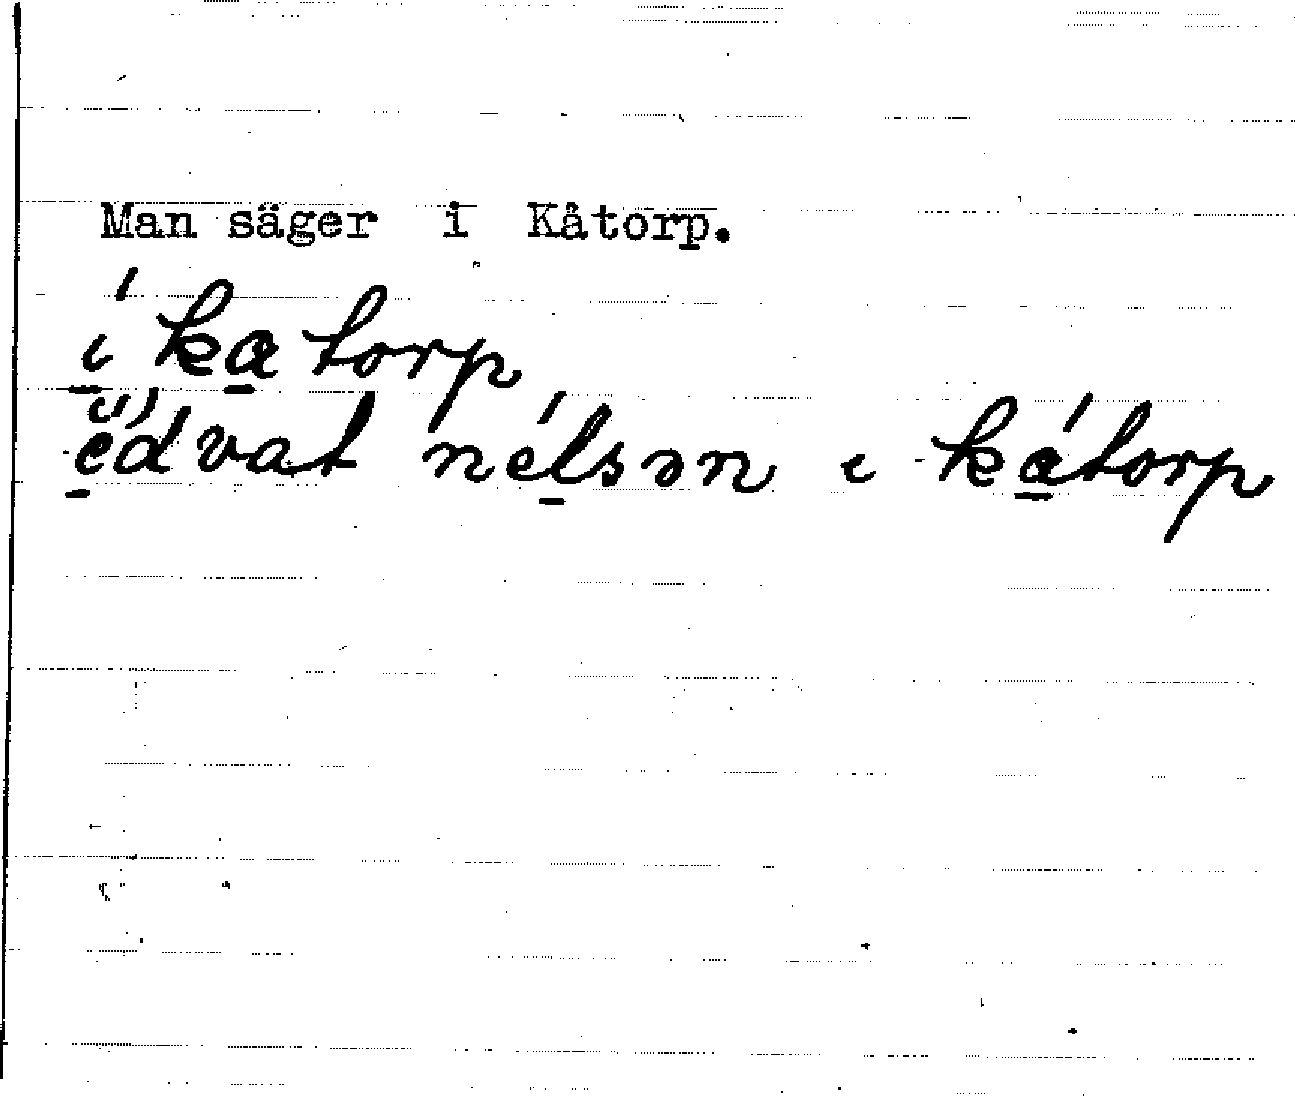 Man säger i Kåtorp.
í katorp
édvat nélsɘn i kátorp